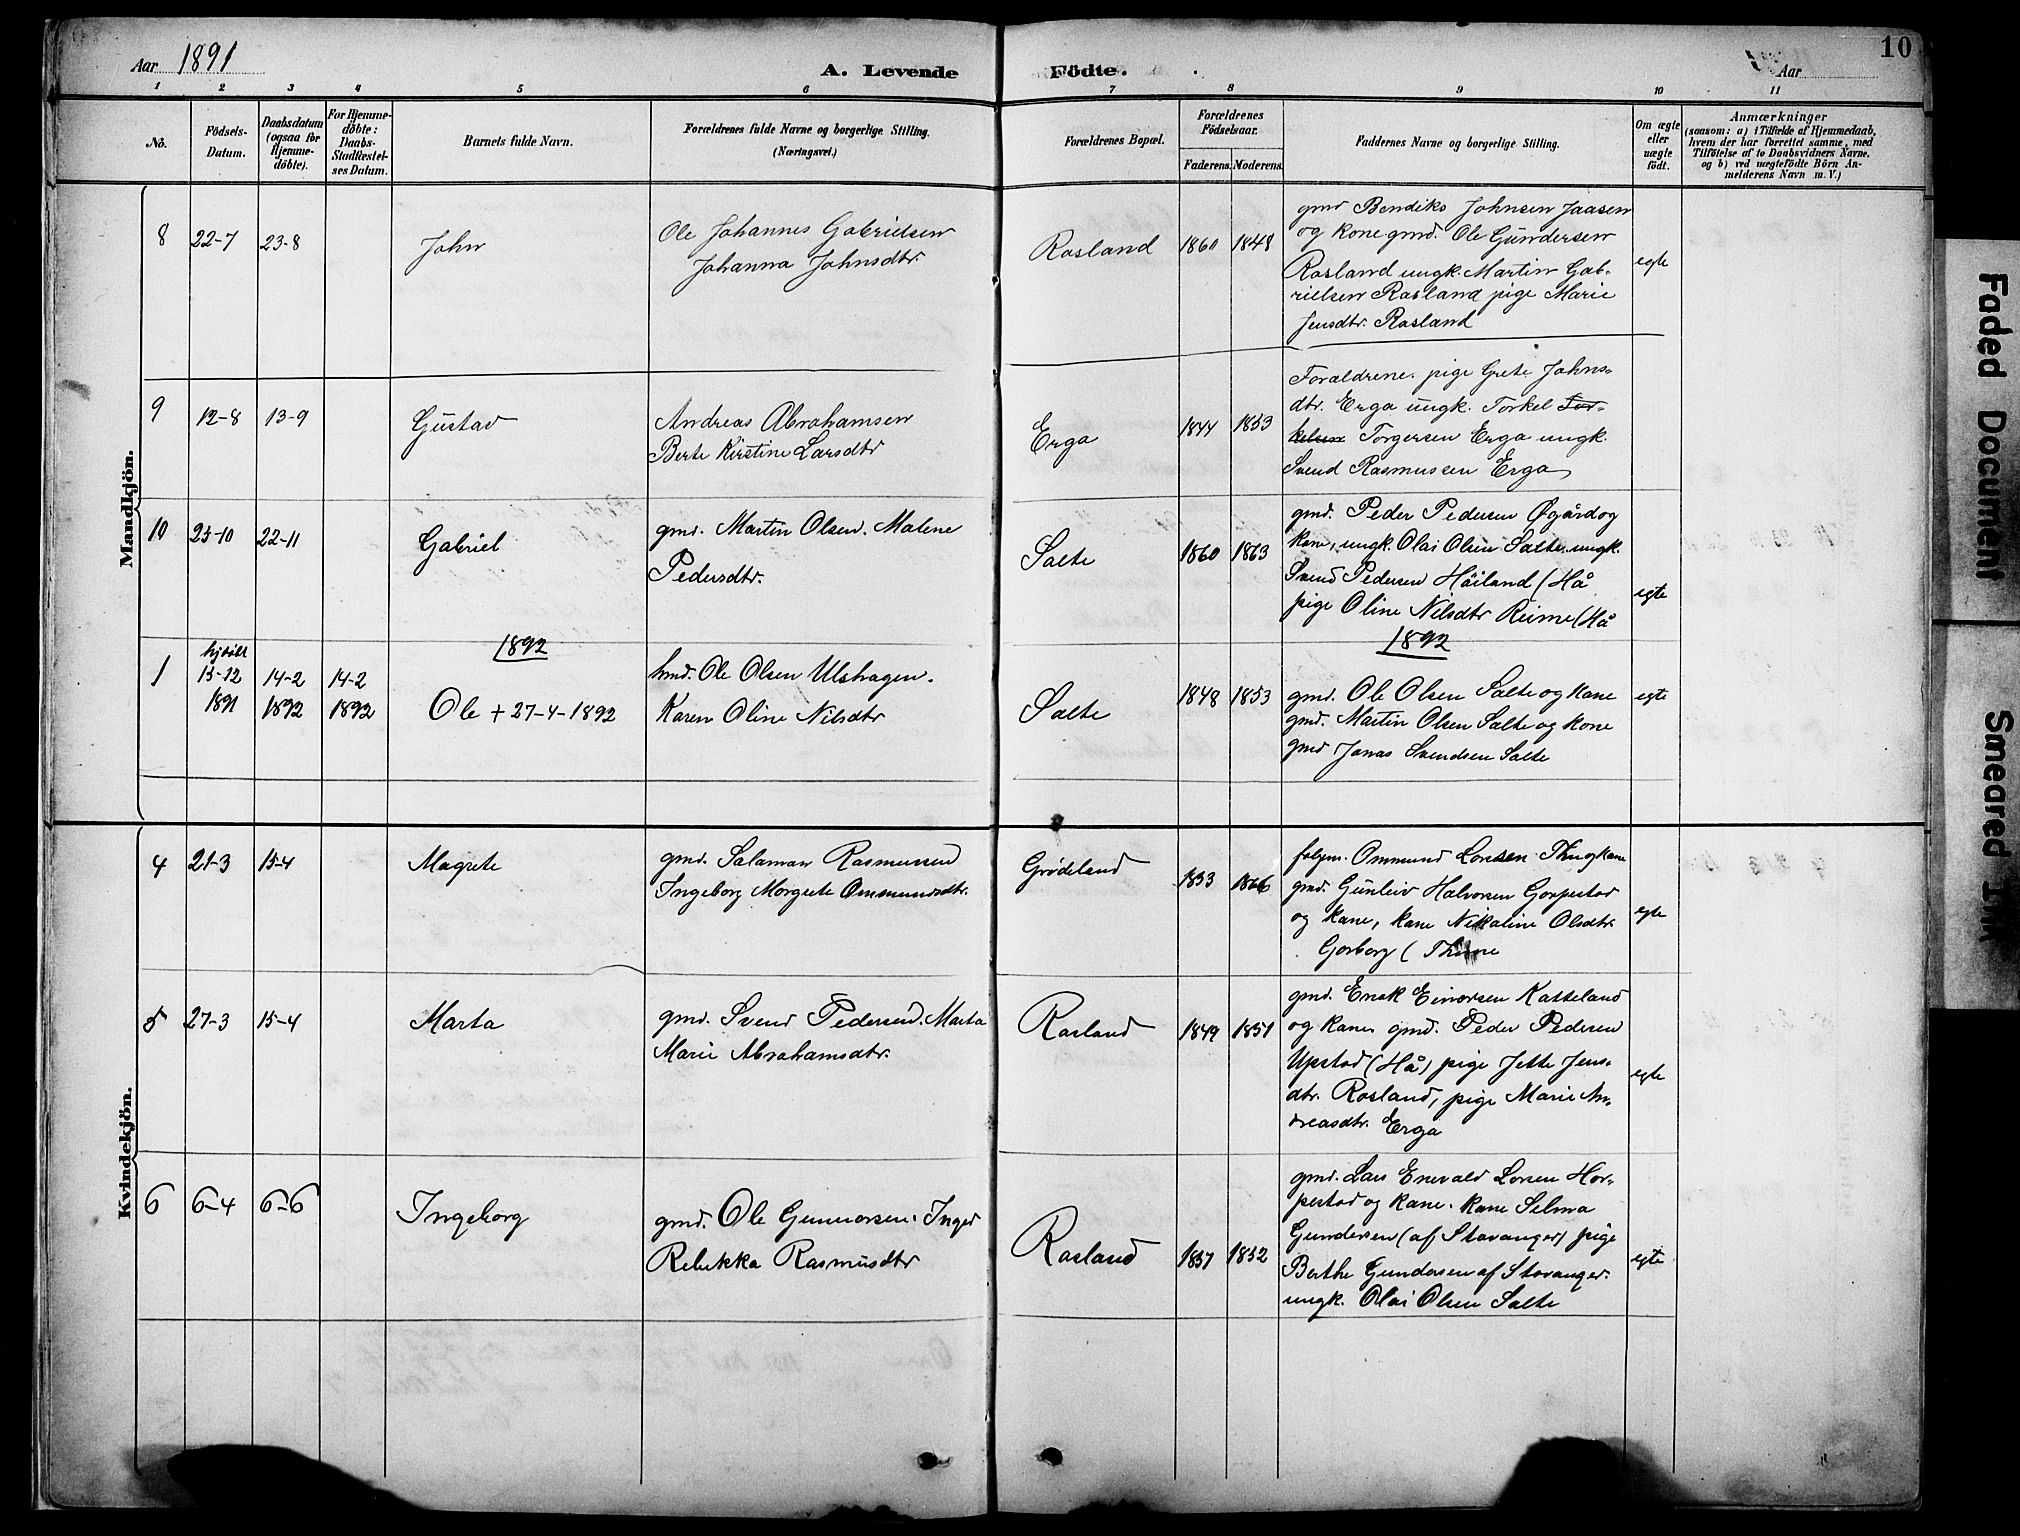 Aar 1891
A. Levende Födte.
Aar
10
1 2 3 4 5 6 7 8 9 10 11
No.
Födsels-
Datum.
Daabsdatum
(ogsaa for
Hjemme-
döbte).
For Hjemme-
döbte:
Daabs-
Stadfæstel-
ses Datum.
Barnets fulde Navn.
Forældrenes fulde Navne og borgerlige Stilling.
(Næringsvei.)
Forældrenes Bopæl.
Forældrenes
Födselsaar.
Faderens. Moderens.
Faddernes Navne og borgerlige Stilling.
Om ægte
eller
uægte
födt.
Anmærkninger
(saasom: a) i Tilfælde af Hjemmedaab,
hvem der har forrettet samme, med
Tilföielse af to Daabsvidners Navne,
og b) ved uægtefödte Börn An-
melderens Navn m. V.)
Mandkjön.
8 22-7 23-8 John
Ole Johannes Gabrielsen
Johanna Johnsdtr.
Rosland 1860 1848
gmd Bendiks Johnsen Jaasen
og kone gmd. Ole Gundersen
Rosland ungk. Martin Gab-
rielsen Rosland pige Marie
Jensdtr. Rosland
egte
9 12-8 13-9 Gustav
Andreas Abrahamsen
Berte Kirstine Larsdtr
Erga 1844 1853
Forældrene. pige Grete Johns-
dtr. Erga ungk. Torkel Tor-
kelsen Torgersen Erga ungk.
Svend Rasmussen Erga
10 25-10 22-11 Gabriel
gmd. Martin Olsen. Malene
Pedersdtr.
Salte 1860 1863
gmd. Peder Pedersen Øgård og
kone, ungk. Olai Olsen Salte. ungk.
Svend Pedersen Håiland (Hå
pige Oline Nilsdtr Reime (Hå
egte
1892
1892
1
13-12
1891
14-2
1892
14-2
1892
Ole + 27-4-1892
hmd. Ole Olsen Ulshagen.
Karen Oline Nilsdtr
Salte 1848 1853
gmd. Ole Olsen Salte og kone
gmd. Martin Olsen Salte og kone
gmd Jonas Svendsen Salte
egte
Kvindekjön.
4 21-3 15-4 Magrete
gmd. Salamon Rasmussen
Ingeborg Morgrete Ommundsdtr.
Grødeland 1853 1866
Ommund
gmd. Gunleiv Halvorsen
og kone, kone Nikoline Olsdtr.
Gorborg (Thime
egte
5 27-3 15-4 Marta
gmd. Svend Pedersen. Marta
Marie Abrahamsdtr.
Rosland 1849 1851
gmd. Enok Einarsen Katteland
og kone gmd. Peder Pedersen
Upstad (Hå) pige Jette Jens-
dtr. Rosland, pige Marie An-
dreasdtr. Erga
egte
6 6-4 6-6 Ingeborg
gmd. Ole Gunnarsen. Inger
Rebekka Rasmusdtr
Rosland 1857 1852
gmd. Lars Enevald Larsen Hor-
pestad og kone. kone Selma
Gundersen (af Stavanger) pige
Berthe Gundersen af Stavanger.
ungk. Olai Olsen Salte
egte
Faded Document
Smeared Ink